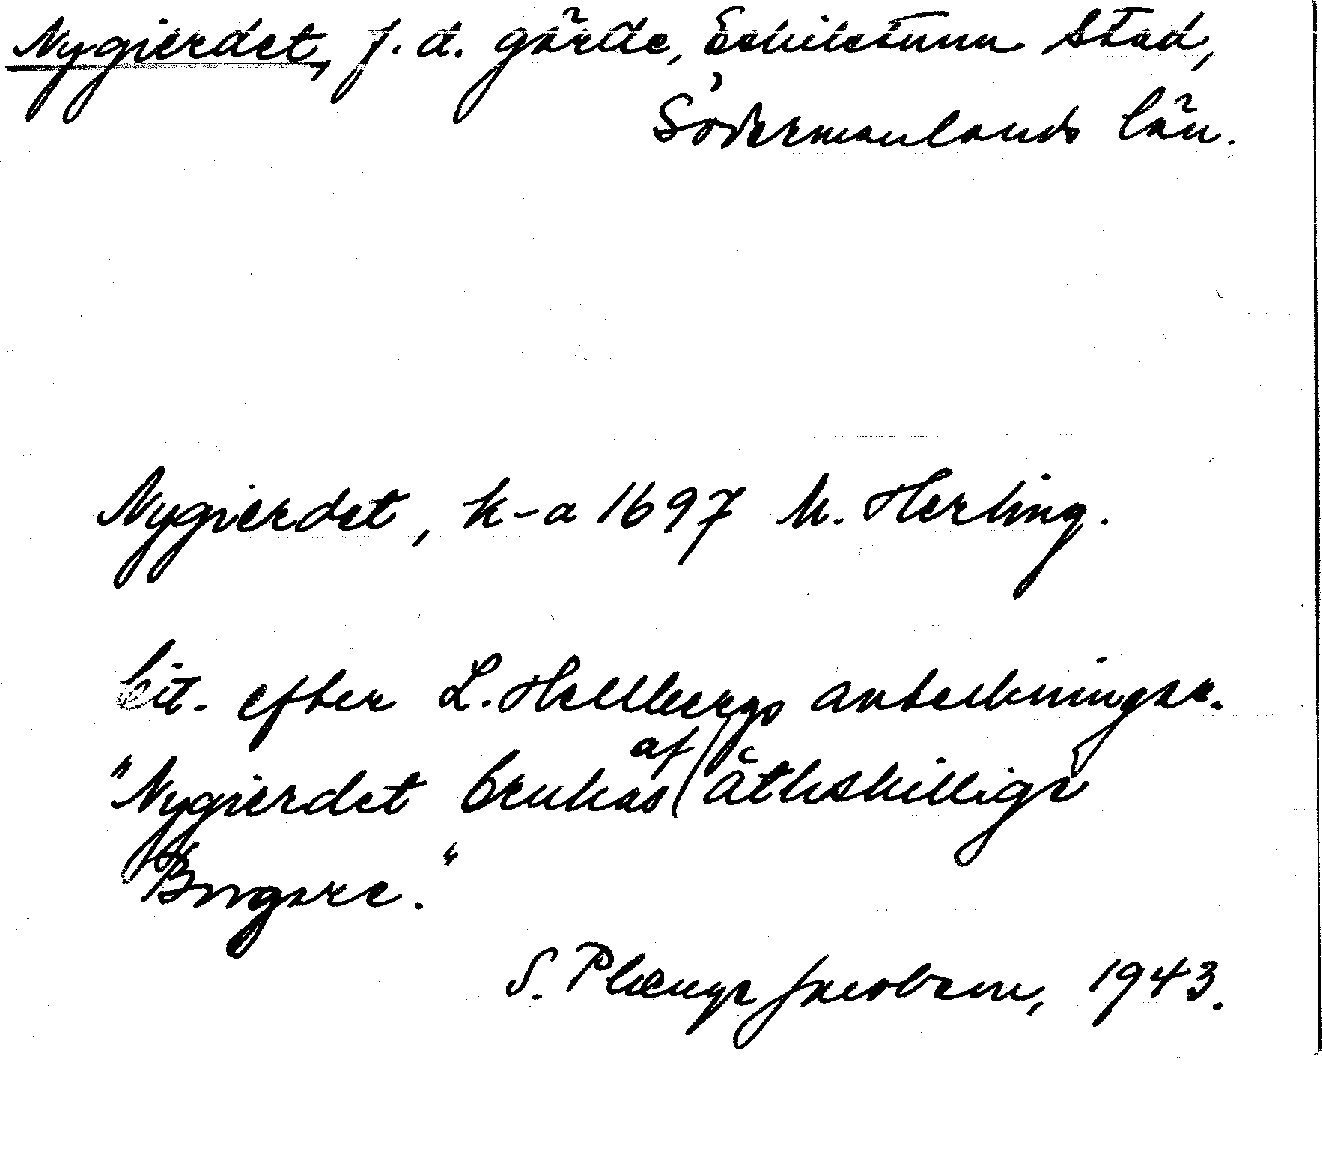 Nygierdet, f. d. gärde, Eskilstuna Stad,
Södermanlands län.
Nygierdet, k-a 1697 M. Herling.
Cit. efter L. Hellbergs anteckningar.
"Nygierdet brukas af åtskillige
Borgare."
S. Plænge Jacobson, 1943.